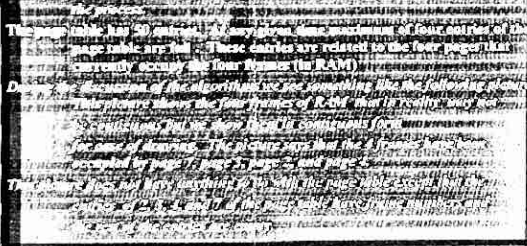 the process.
The page table has 50 entries. At any given time maximum of four entries of the
page table are full. These entries are related to the four pages that
currently occupy the four frames (in RAM)
During the discussion of the algorithms we see something like the following picture
This picture shows the four frames of RAM that in reality may not
be contiguous but we show them in contiguous form
for ease of drawing. The picture says that the 4 frames have been
occupied by page 7, page page 2 and page
This picture does not have anything to do with the page table except that the
entries of 2, and 7 of the page table have frame numbers and